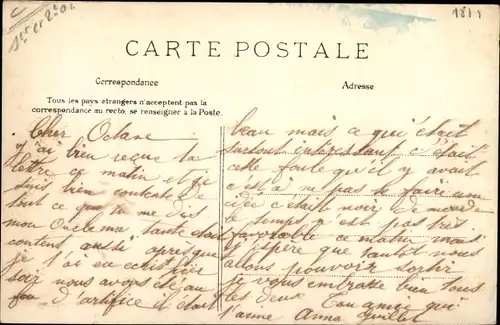 1811
CARTE POSTALE
Correspondance
Adresse
Tous les pays étrangers n'acceptent pas la
correspondance au recto, se renseigner à la Poste.
Cher Octave
j'ai bien reçue ta
lettre ce matin et je
suis bien contente de
tout ce que tu me dis
mon Oncle ma tante était
content aussi après que
je l'ai eu
soir nous avons été au
feu d'artifice il était
beau mais ce qui était
surtout intéressant c'était
cette foule qu'il y avait
c'est à ne pas se faire une
idée c'était noir de monde
le temps n'est pas très
favorable ce matin mais
j'espère que tantôt nous
allons pouvoir sortir
je vous embrasse bien tous
les deux Ton amie qui
t'aime Anna